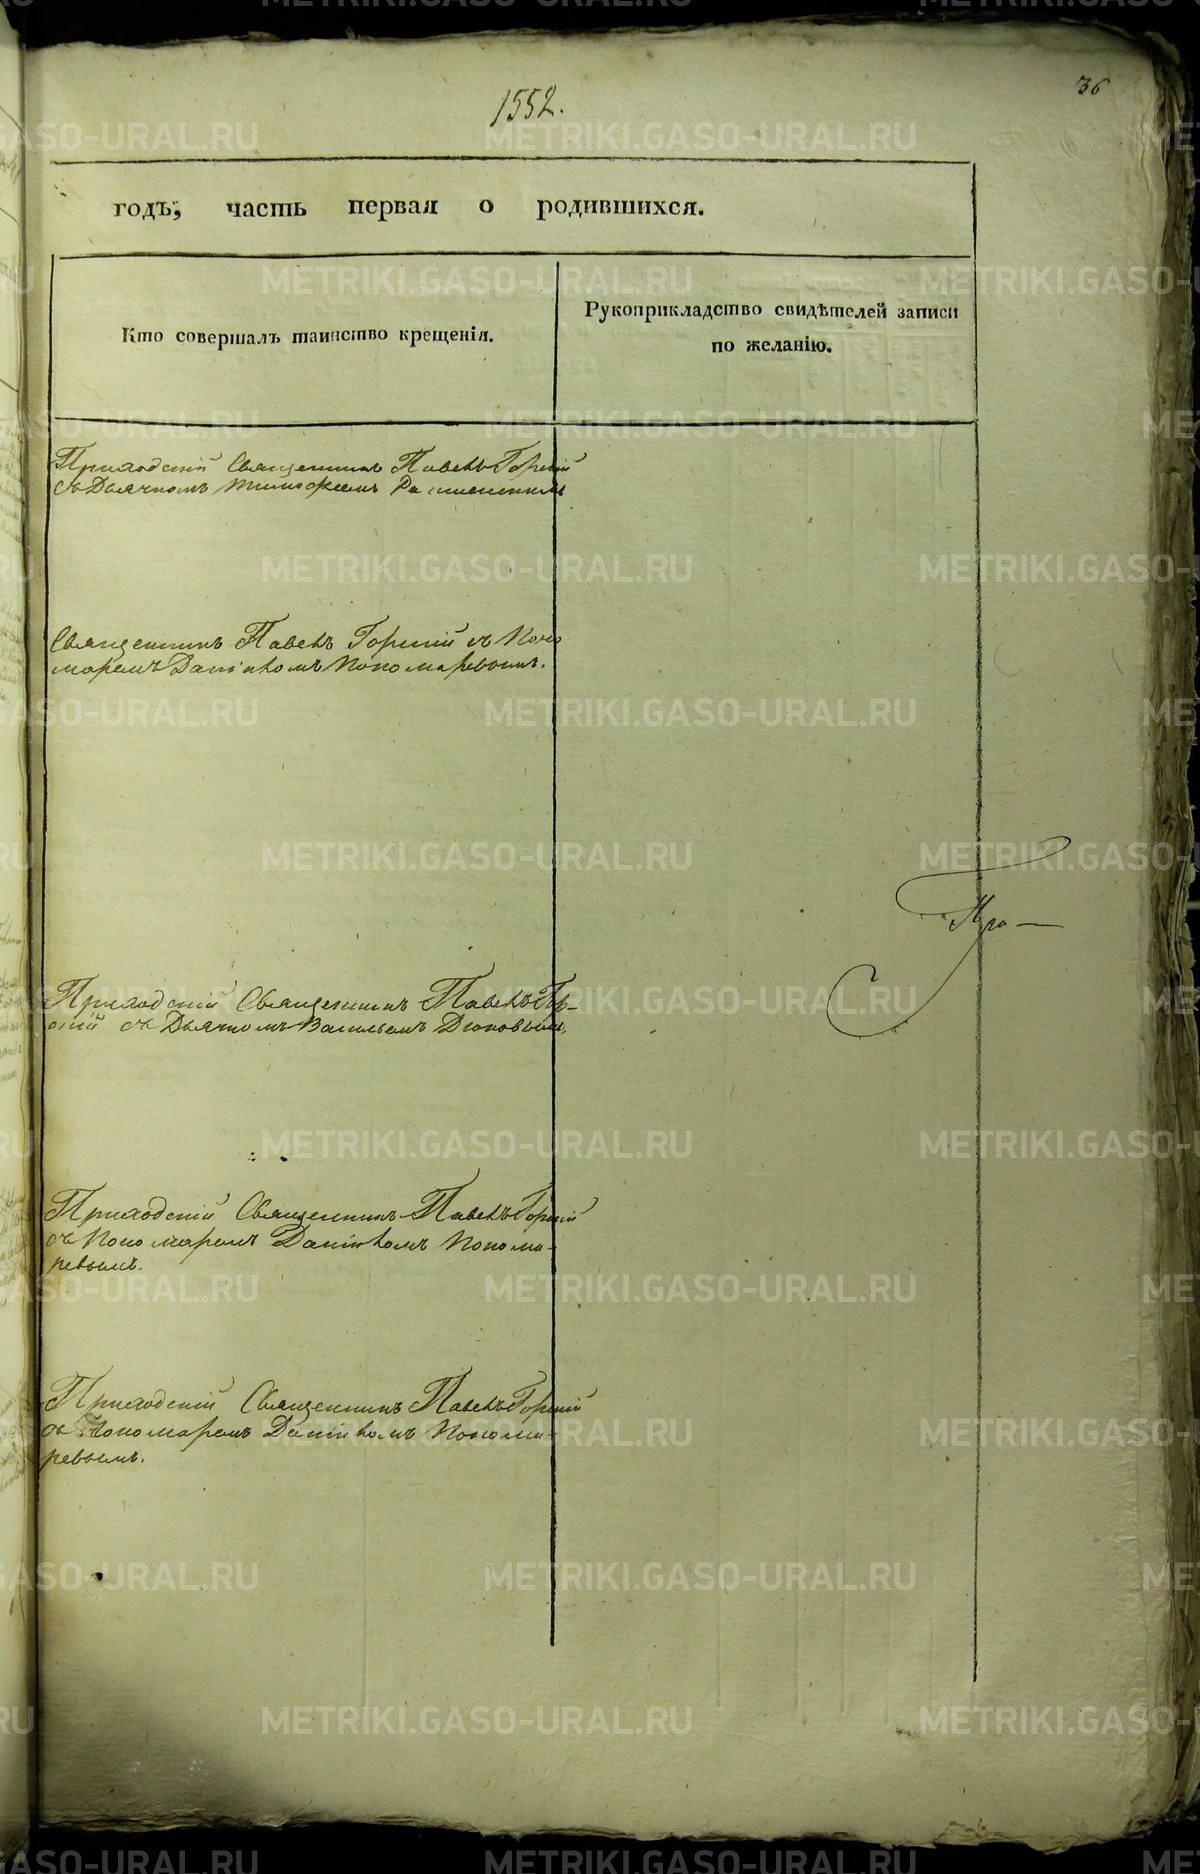 36
1552.
годъ, часть первая о родившихся.
Кто совершалъ таинство крещенія.
Рукоприкладство свидѣтелей записи
по желанію.
Приходскій Священникъ Павелъ Горскій
съ Дьячкомъ Тимофеемъ
Священникъ Павелъ Горскій съ Поно
маремъ Даніиломъ Пономаревымъ.
Про—
Приходскій Священникъ Павелъ Гор-
скій съ Дьячкомъ Васильемъ Дюковымъ
Приходскій Священникъ Павелъ Горскій
съ Пономаремъ Даніиломъ Понома-
ревымъ.
Приходскій Священникъ Павелъ Горскій
съ Пономаремъ Даніиломъ Понома-
ревымъ.
METRIKI.GASO-URAL.RU